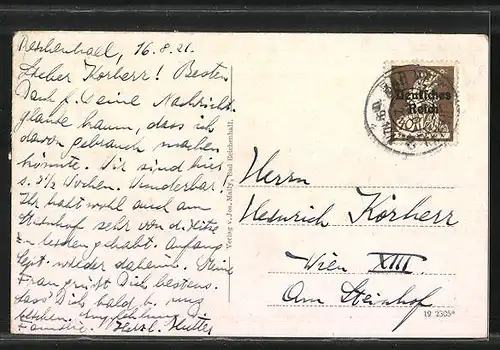 Reichenhall, 16.8.21.
Lieber Körherr! Besten
Dank f. Deine Nachricht
glaube kaum, dass ich
davon gebrauch machen
könnte. Wir sind hier
s. 3½ Wochen. Wunderbar!
Ihr habt wohl auch am
Steinhof sehr von d. Hitze
zu leiden gehabt. Anfang
Sept. wieder daheim. Meine
Frau grüßt Dich bestens.
Lass Dich bald b. uns
sehen. Empfehlung
Familie. Herzl.
Verlag v. Jos. Maily, Bad Reichenhall.
Deutsches
Reich
Herrn
Heinrich Körherr
Wien XIII.
Am Steinhof
19 2305*